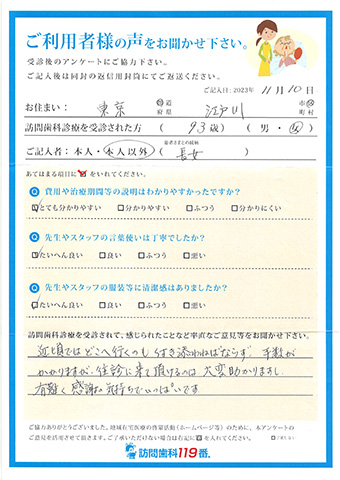 ご利用者様の声をお聞かせ下さい。
受診後のアンケートにご協力下さい。
ご記入後は同封の返信用封筒にてご返送ください。
ご記入日:2023年 11月 10日
お住まい: 東京 都道府県 江戸川 市区町村
訪問歯科診療を受診された方 ( 93歳) (男・女)
ご記入者:本人・本人以外 患者さまとの続柄 ( 長女 )
あてはまる項目に をいれてください。
Q 費用や治療期間等の説明はわかりやすかったですか?
とても分かりやすい 分かりやすい ふつう 分かりにくい
Q 先生やスタッフの言葉使いは丁寧でしたか?
たいへん良い 良い ふつう 悪い
Q 先生やスタッフの服装等に清潔感はありましたか?
たいへん良い 良い ふつう 悪い
訪問歯科診療を受診されて、感じられたことなど率直なご意見等をお聞かせ下さい。
近頃では どこへ行くのも つき添わねばならず、手数が
かかりますが、往診に来て頂けるのは 大変助かりますし、
有難く 感謝の気持ちでいっぱいです
ご協力ありがとうございました。地域在宅医療の啓蒙活動(ホームページ等)のために、本アンケートの
ご意見を活用させて頂きます。ご了承いただけない場合は右記に を入れてください。
訪問歯科119番。